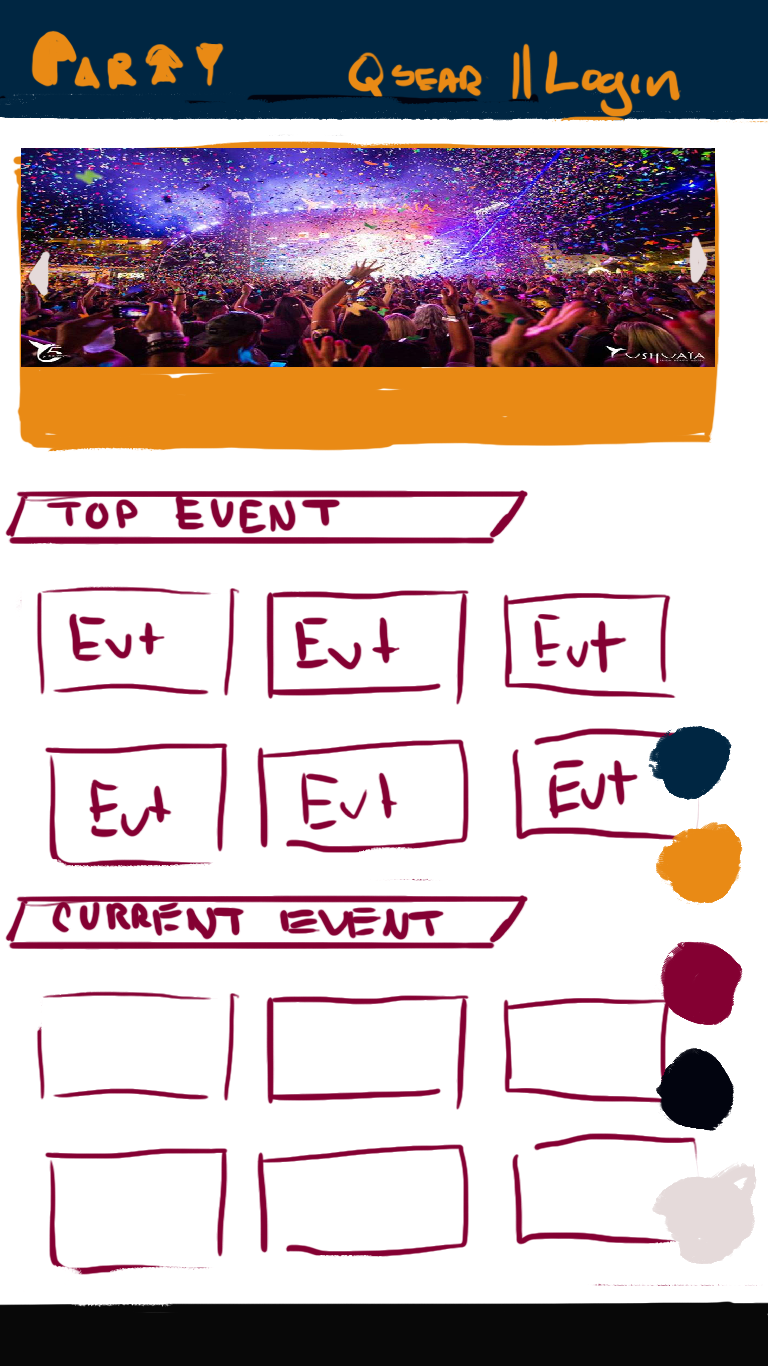 PARTY
QSEAR || Login
USHUAIA
USHUAIA
TOP EVENT
Evt Evt Evt
Evt Evt Evt
CURRENT EVENT